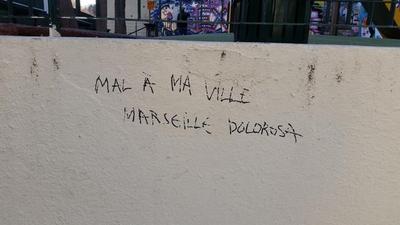 MAL À MA VILLE
MARSEILLE DOLOROSA